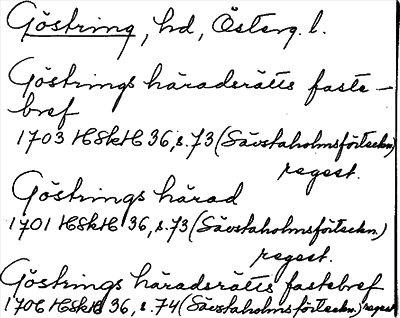 Göstring, hd, Österg. l.
Göstrings häradsrätts faste-
bref
1703 HSkH 36, s. 73 (Sävstaholmsförteckn.)
regest.
Göstrings härad
1701 HSkH 36, s. 73 (Sävstaholmsförteckn.)
regest.
Göstrings häradsrätts fastebref
1706 HSkH 36, s. 74 (Sävstaholmsförteckn.) regest